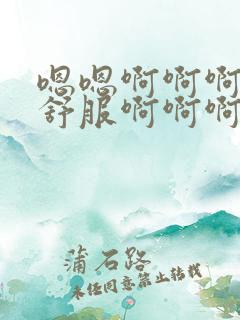 嗯嗯啊啊啊
舒服啊啊啊
蒲石路
未经同意禁止转载